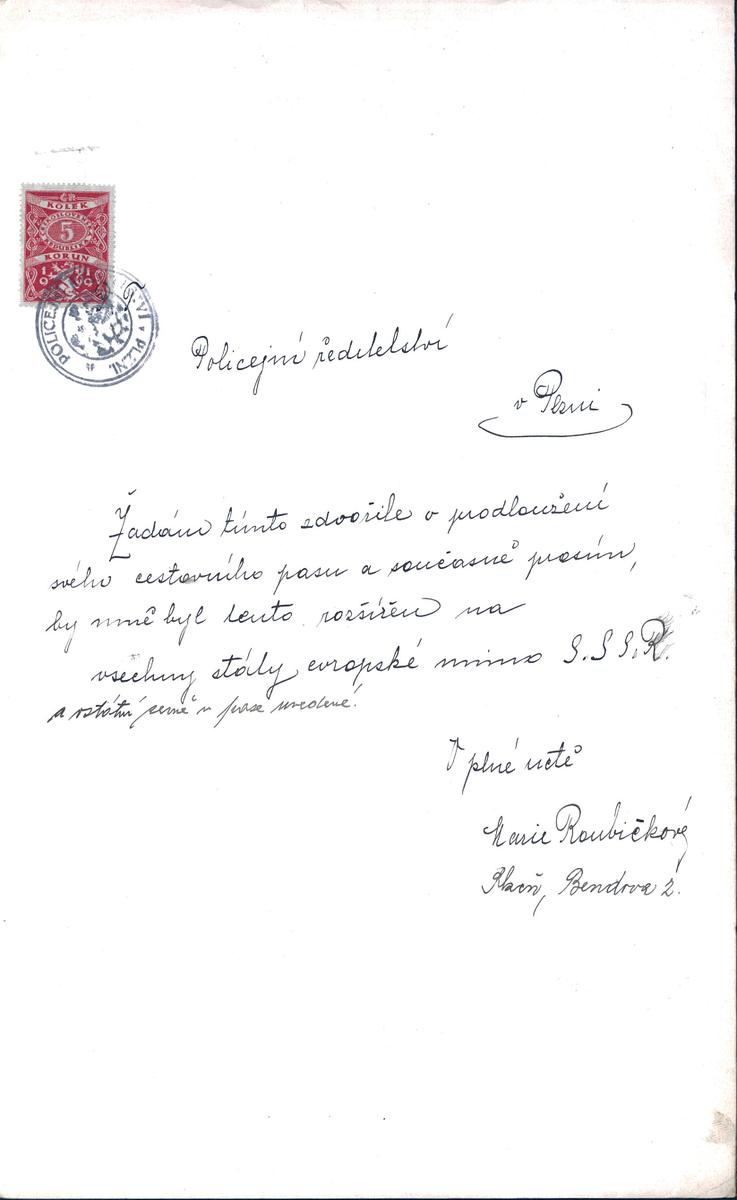 ČR
KOLEK
ČESKOSLOVENSKÁ
5
REPUBLIKA
KORUN
POLICEJNÍ ŘEDITELSTVÍ V PLZNI.
Policejní ředitelství
v Plzni
Žádám tímto zdvořile o prodloužení
svého cestovního pasu a současně prosím,
by mně byl tento rozšířen na
všechny státy evropské mimo S.S.S.R.
a ostatní země v pase uvedené.
V plné úctě
Marie Roubíčková
Plzeň, Bendova 2.